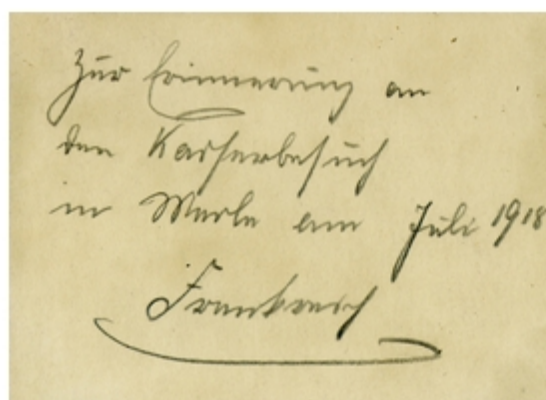 Zur Erinnerung an
den Kaiserbesuch
in Marle am Juli 1918
Frankreich